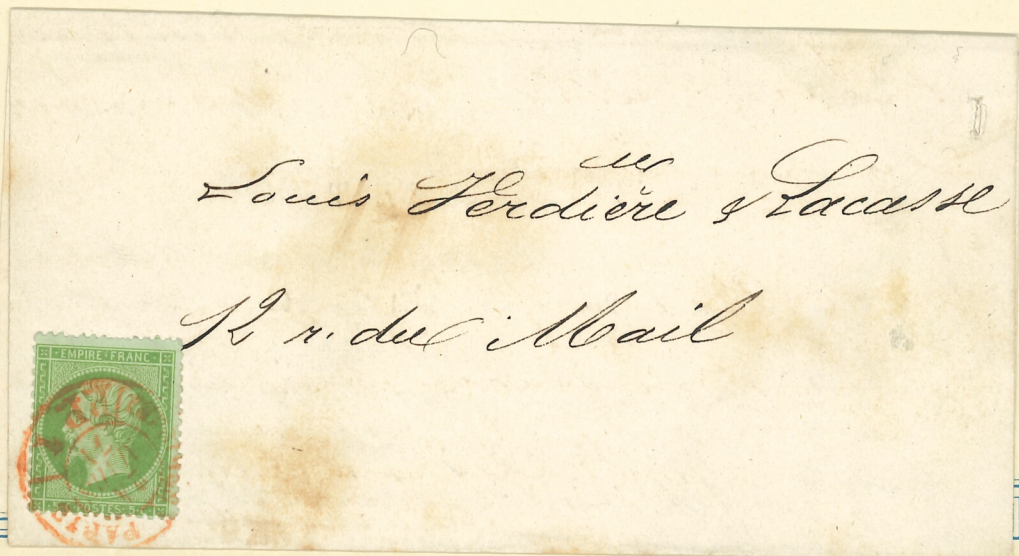 Louis Verdière & Lacasse
12 r. du Mail
EMPIRE FRANC
5 C POSTES 5 C
PARIS